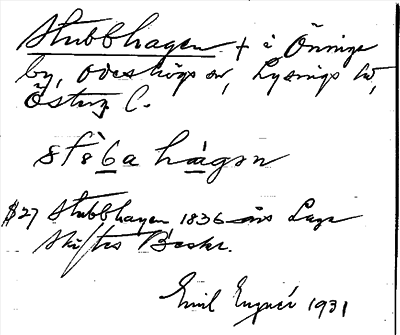 Stubbhagen + i Önninge
by, Ödeshögs sn, Lysings hd,
Östergl.
hågən
§27 Stubbhagen 1836 års Laga
Skiftes Beskr.
Emil Engnér 1931